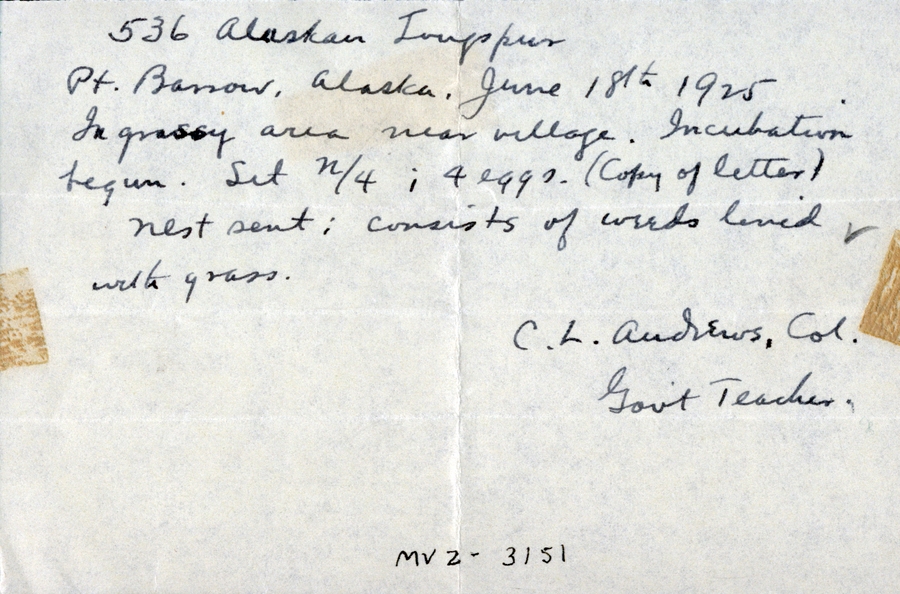 536 Alaskan Longspur
Pt. Barrow, Alaska. June 18th 1925
In grassy area near village. Incubation
begun. Set n/4 ; 4 eggs. (Copy of letter)
nest sent ; consists of weeds lined
with grass.
C. L. Andrews, Col.
Gov't Teacher.
MVZ - 3151